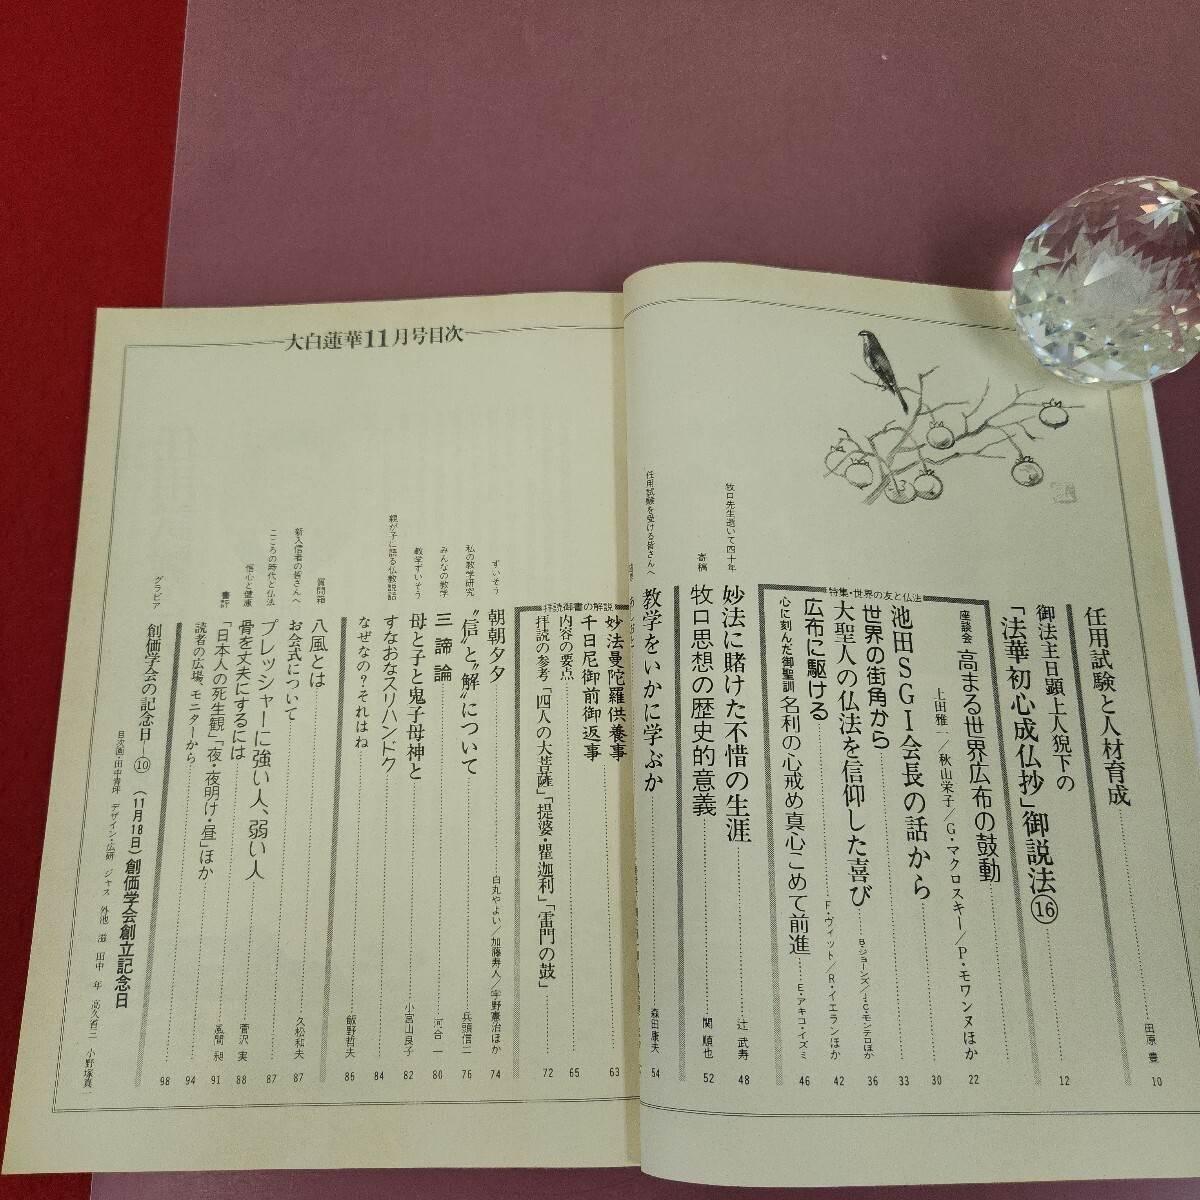 大白蓮華11月号目次
任用試験と人材育成
田原 豊
10
御法主日顕上人猊下の
「法華初心成仏抄」御説法⑯
12
特集・世界の友と仏法
座談会 高まる世界広布の鼓動
上田雅一/秋山栄子/G・マクロスキー/P・モワンヌほか
22
池田SGI会長の話から
30
世界の街角から
33
B・ジョーンズ/J・C・モンテロほか
36
大聖人の仏法を信仰した喜び
F・ヴィット/R・イエランほか
42
広布に駆ける
心に刻んだ御聖訓 名利の心戒め真心こめて前進
E・アキコ・イズミ
46
牧口先生逝いて四十年
妙法に賭けた不惜の生涯
辻 武寿
48
寄稿
牧口思想の歴史的意義
関 順也
52
任用試験を受ける皆さんへ
教学をいかに学ぶか
森田康夫
54
拝読御書の解説
妙法曼陀羅供養事
63
千日尼御前御返事
65
内容の要点
拝読の参考 「四人の大菩薩」「提婆・瞿迦利」「雷門の鼓」
72
ずいそう
朝朝夕夕
白丸やよい/加藤寿人/宇野憲治ほか
74
私の教学研究
“信”と“解”について
兵頭信二
76
みんなの教学
三諦論
河合 一
80
教学ずいそう
母と子と鬼子母神と
小宮山良子
82
親が子に語る仏教説話
すなおなスリハンドク
84
なぜなの?それはね
飯野哲夫
86
質問箱
八風とは
久松和夫
87
新入信者の皆さんへ
お会式について
87
こころの時代と仏法
プレッシャーに強い人、弱い人
菅沢 実
88
信心と健康
骨を丈夫にするには
風間 昶
91
書評
「日本人の死生観」「夜・夜明け・昼」ほか
94
読者の広場、モニターから
98
グラビア
創価学会の記念日―⑩ (11月18日)創価学会創立記念日
目次画・田中青坪 デザイン・広研 ジャス 外池 滋 田中 年 高久省三 小野塚真一